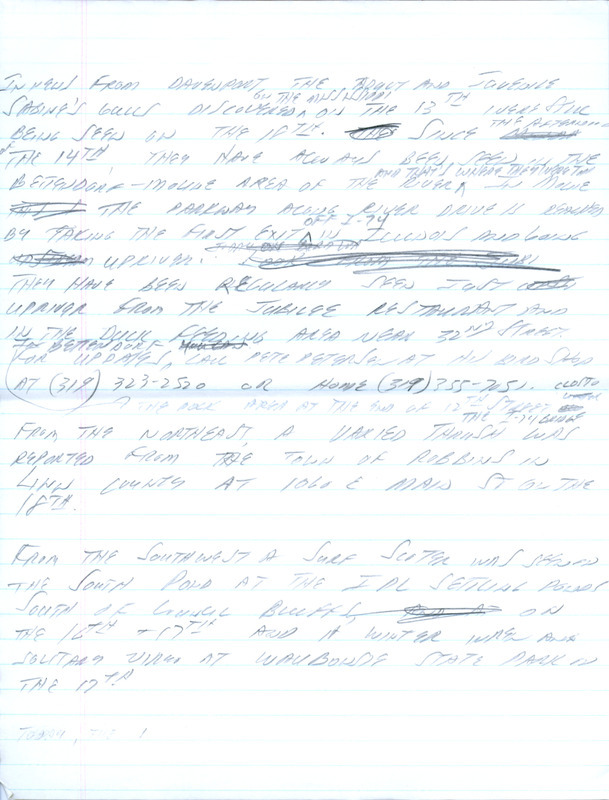 IN NEWS FROM DAVENPORT, THE ADULT AND JUVENILE
ON THE MISSISSIPPI
SABINE'S GULLS DISCOVERED ON THE 13TH WERE STILL
BEING SEEN ON THE 18TH. SINCE THE AFTERNOON
OF THE 14TH, THEY HAVE ALWAYS BEEN SEEN IN THE
BETTENDORF-MOLINE AREA OF THE RIVER, IN MOLINE
THE PARKWAY ALONG RIVER DRIVE IS REACHED
OFF I-74
BY TAKING THE FIRST EXIT IN ILLINOIS AND GOING
UPRIVER.
THEY HAVE BEEN REGULARLY SEEN JUST
UPRIVER FROM THE JUBILEE RESTAURANT AND
IN THE DUCK FEEDING AREA NEAR 32ND STREET.
IN BETTENDORF
FOR UPDATES, CALL PETE PETERSEN AT HIS BIRD SHOP
AT (319) 323-2520 OR HOME (319) 355-7051.
THE DOCK AREA AT THE END OF 12TH STREET
THE I-74 BRIDGE
FROM THE NORTHEAST, A VARIED THRUSH WAS
REPORTED FROM THE TOWN OF ROBBINS IN
LINN COUNTY AT 1060 E MAIN ST ON THE
18TH.
FROM THE SOUTHWEST A SURF SCOTER WAS SEEN ON
THE SOUTH POND AT THE IPL SETTLING PONDS
SOUTH OF COUNCIL BLUFFS ON
THE 16TH + 17TH AND A WINTER WREN AND
SOLITARY VIREO AT WAUBONSIE STATE PARK ON
THE 17TH
TODAY, THE 1